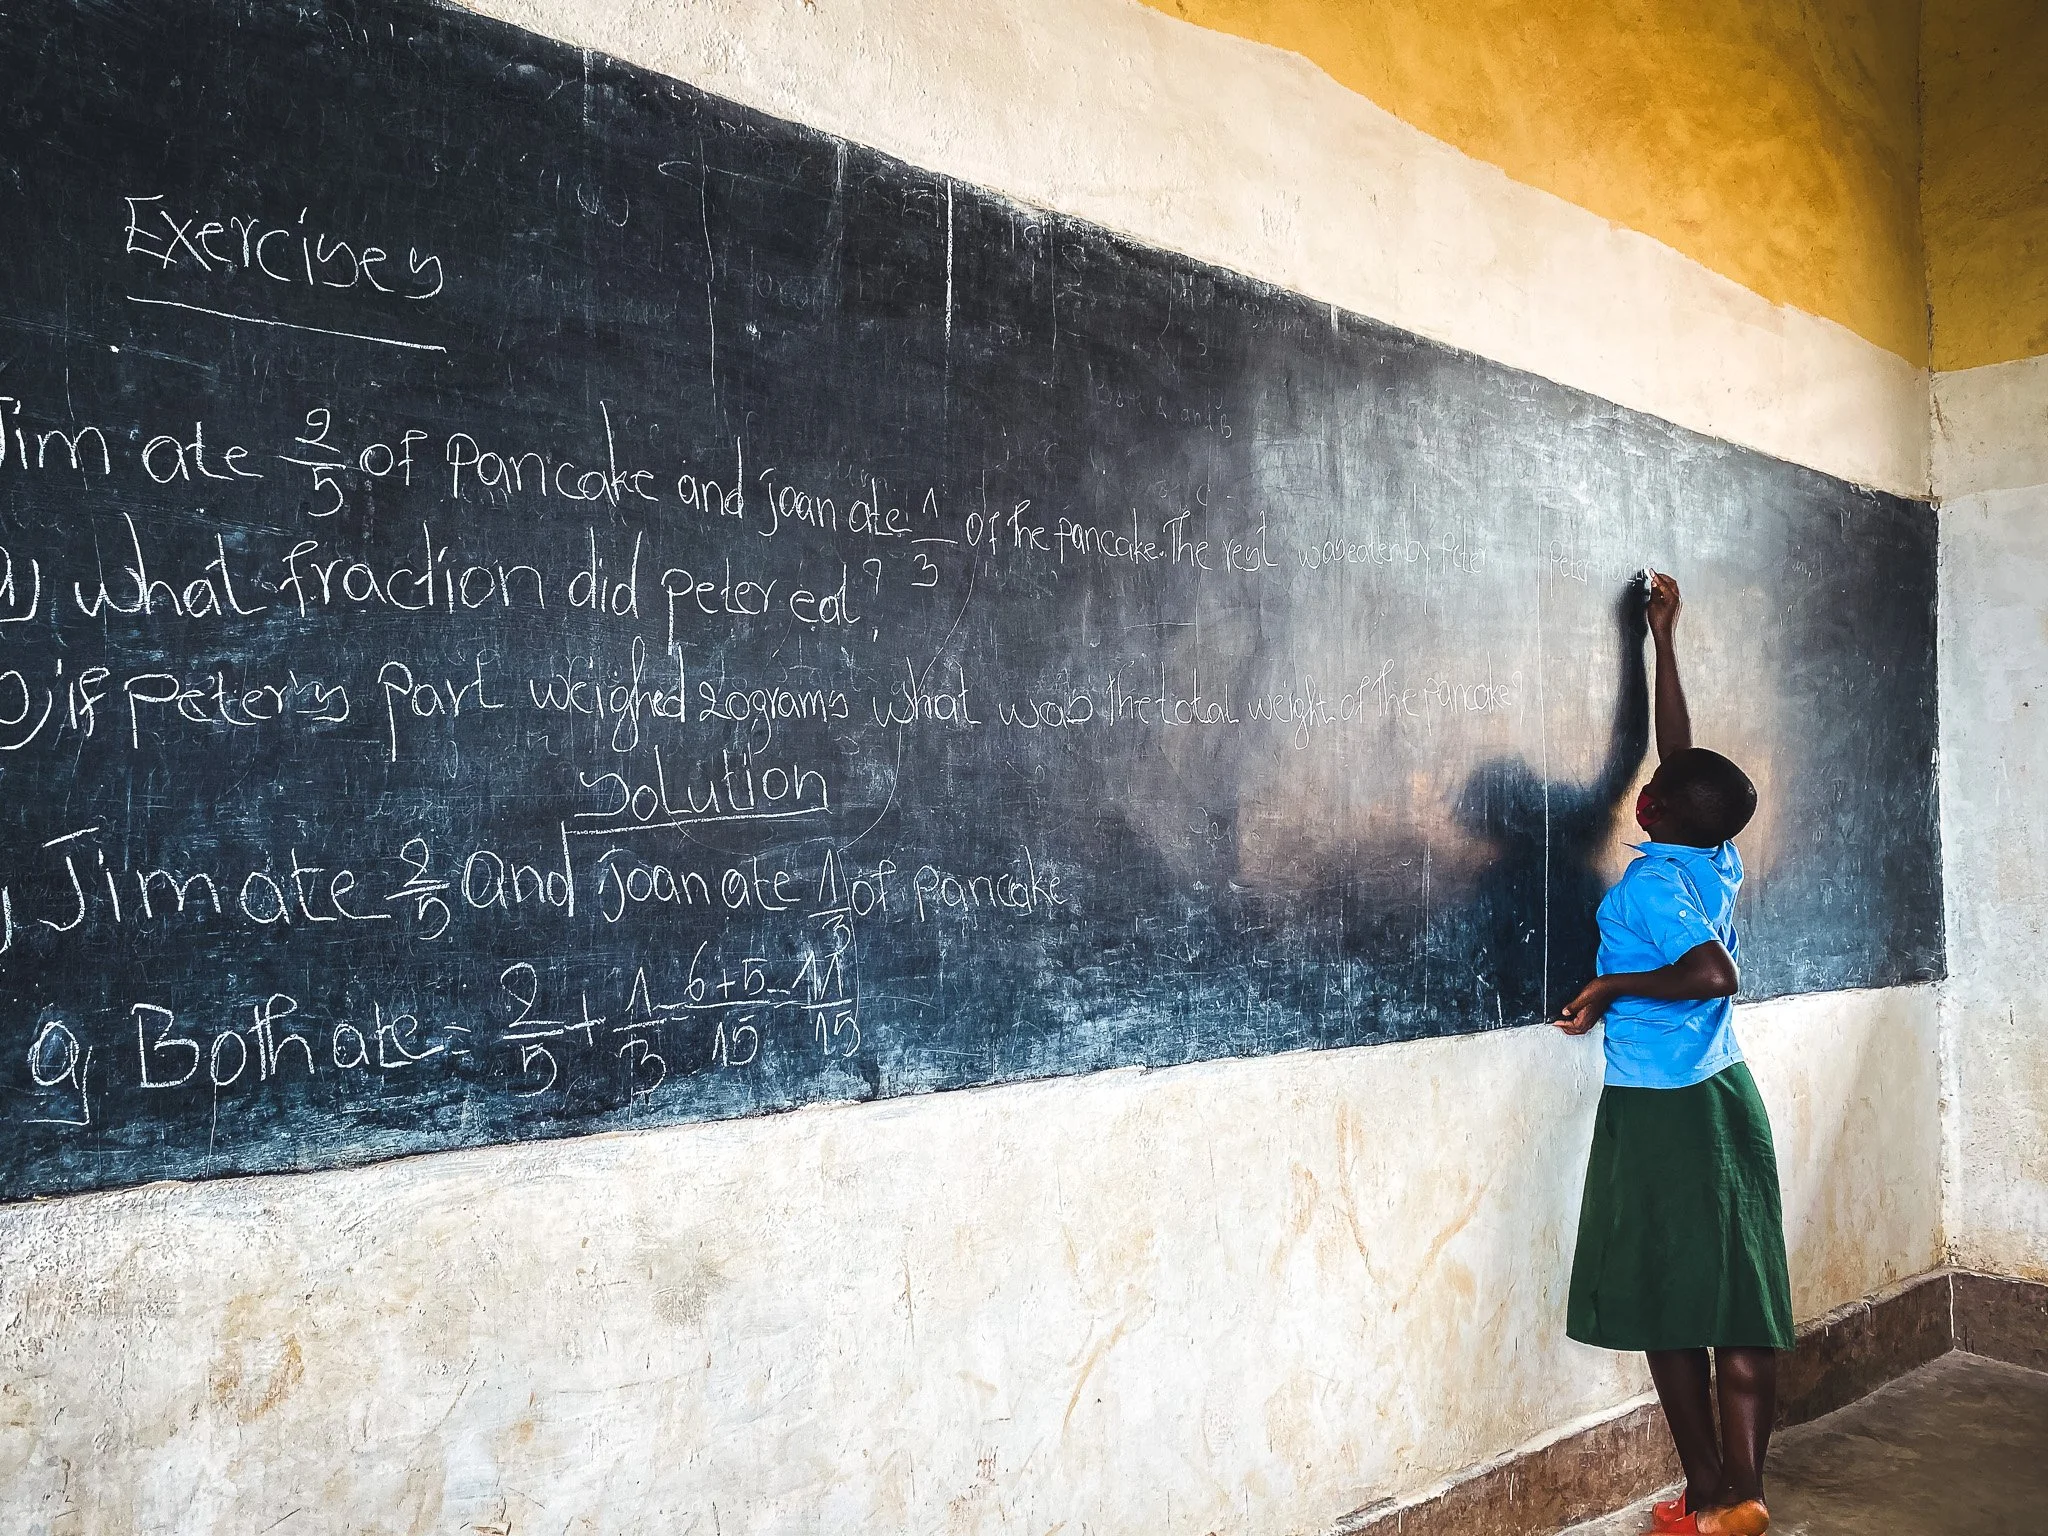 Exercises
Jim ate 2/5 of pancake and joan ate 1/3 of the pancake. The rest was eaten by Peter
a) what fraction did peter eat?
b) if peter's part weighed 20grams what was the total weight of the pancake?
Solution
Jim ate 2/5 and joan ate 1/3 of pancake
a) Both ate = 2/5 + 1/3 = 6+5/15 = 11/15
Peter